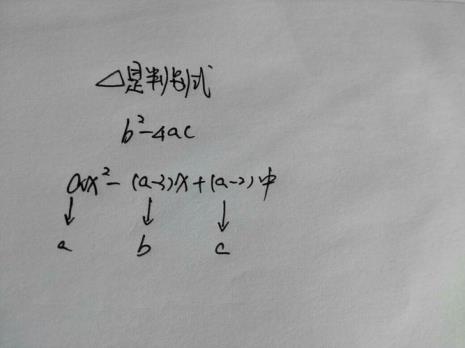 △是判别式
b²-4ac
ax²-(a-3)x+(a-2)中
↓ ↓ ↓
a b c